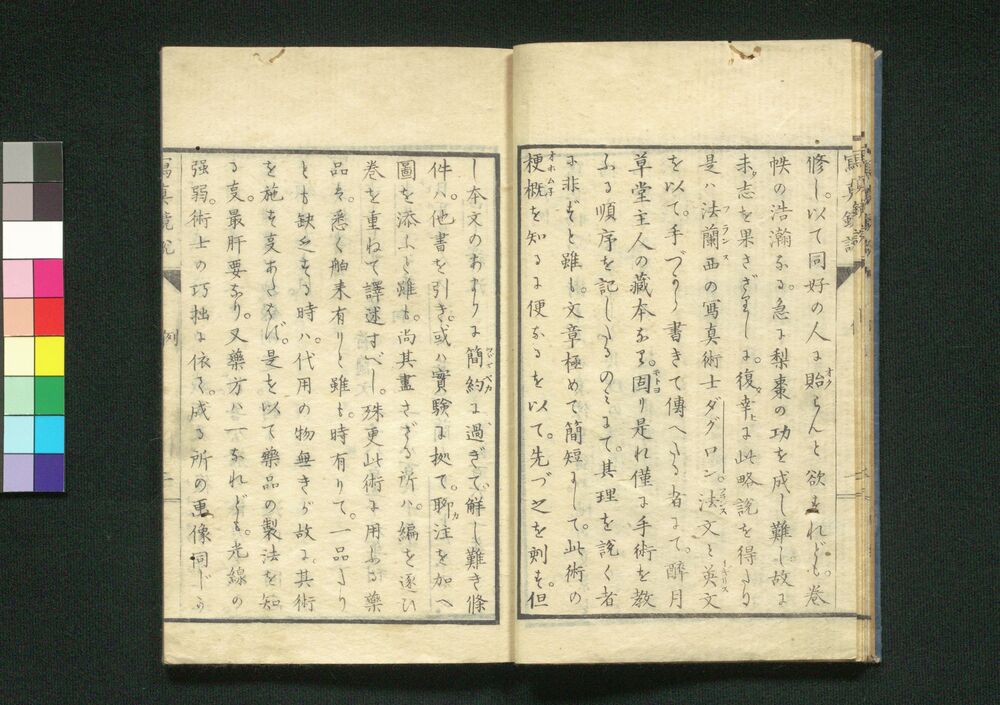 修し。以て同好の人に貽らんと欲すれども。巻
帙の浩瀚なる。急に梨棗の功を成し難し故に
未タ志を果さゞりしに。復タ幸に此略説を得たり
是ハ法蘭西の寫真術士ダグロン。法文と英文
を以て。手づから書きて傳へたる者にて。醉月
草堂主人の藏本なり。固り是れ僅に手術を教
ふる順序を記したるのミにて。其理を説く者
に非ずと雖も。文章極めて簡短にして。此術の
梗概を知るに便なるを以て。先づ之を刺す。但
し本文のあまりに簡約に過ぎで解し難き條
件ハ。他書を引き。或ハ實験に拠て。聊カ注を加へ
圖を添ふと雖も。尚其盡さゞる所ハ。編を逐ひ
巻を重ねて譯述すべし。殊更此術に用ふる藥
品ハ。悉く舶来有りと雖も。時有りて。一品たり
とも缺乏する時ハ。代用の物無きが故に。其術
を施す㕝あたはず。是を以て藥品の製法を知
る㕝。最肝要なり。又藥方ハ一なれども。光線の
强弱。術士の巧拙に依て。成る所の画像同じか
寫真鏡説
例